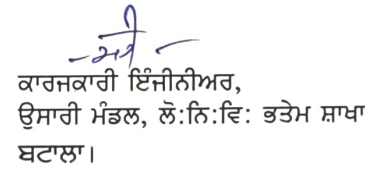 ਕਾਰਜਕਾਰੀ ਇੰਜੀਨੀਅਰ,
ਉਸਾਰੀ ਮੰਡਲ, ਲੋ:ਨਿ:ਵਿ: ਭਤੇਮ ਸ਼ਾਖਾ
ਬਟਾਲਾ।